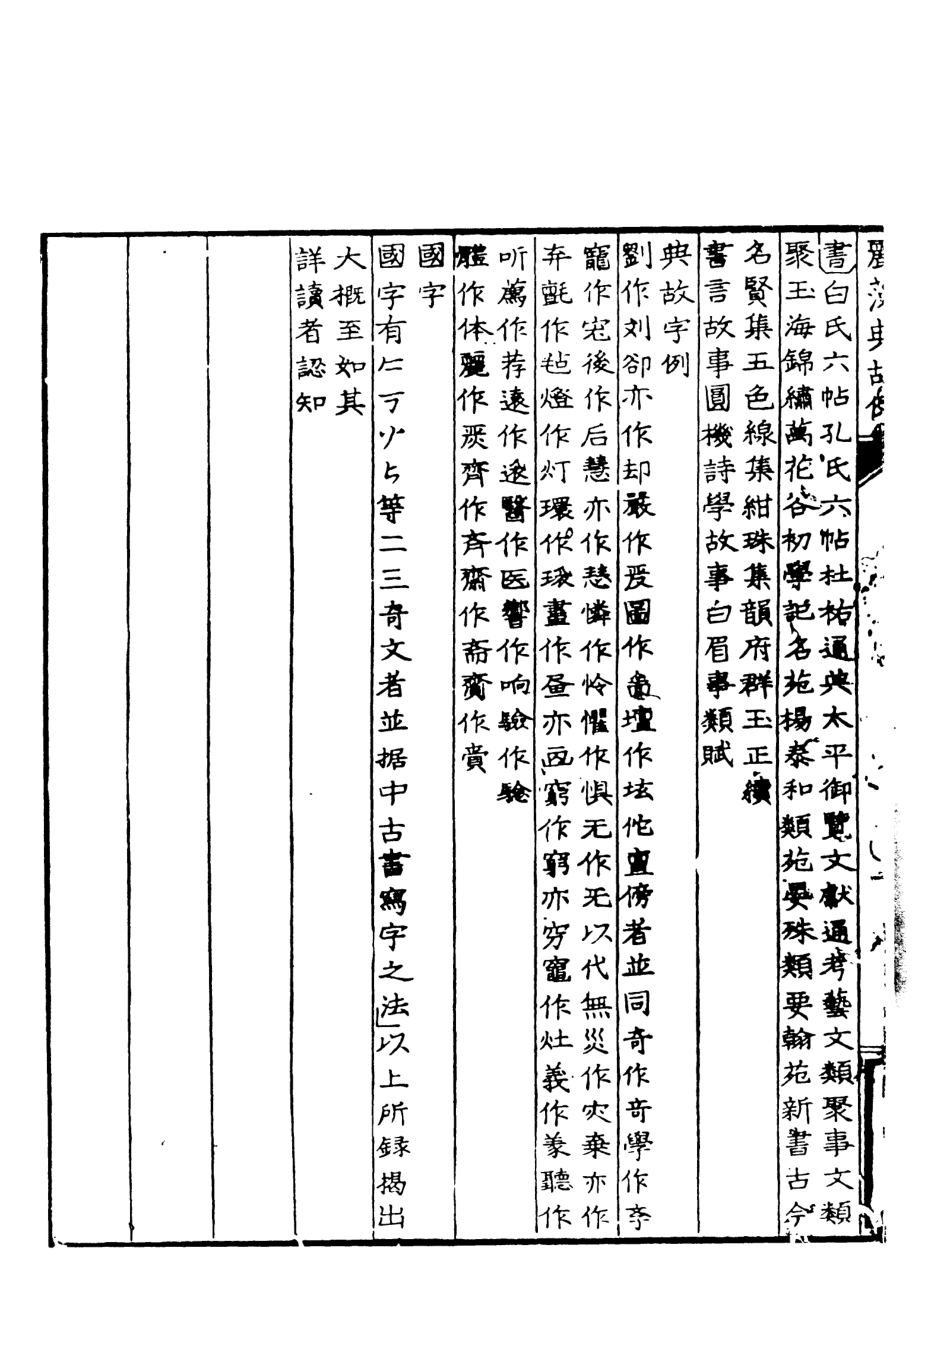 麗藻典故
書白氏六帖孔氏六帖杜祐通典太平御覽文献通考藝文類聚事文類
聚玉海錦繡萬花谷初學記名苑揚泰和類苑晏殊類要翰苑新書古今
名賢集五色線集紺珠集韻府群玉正續
書言故事圓機詩學故事白眉事類賦
典故字例
劉作刘卻亦作却嚴作图作壇作坛佗宣傍者並同奇作竒學作斈
寵作宠後作后慧亦作憐作怜懼作惧无作旡以代無災作灾棄亦作
弃氈作毡燈作灯環作晝作昼亦窮作竆亦穷竈作灶義作聽作
听薦作荐遠作逺醫作医響作响驗作騐
體作体麗作齊作斉齋作斎賓作賔
國字
國字有等二三奇文者並据中古書寫字之法以上所録揭出
大概至如其
詳讀者認知